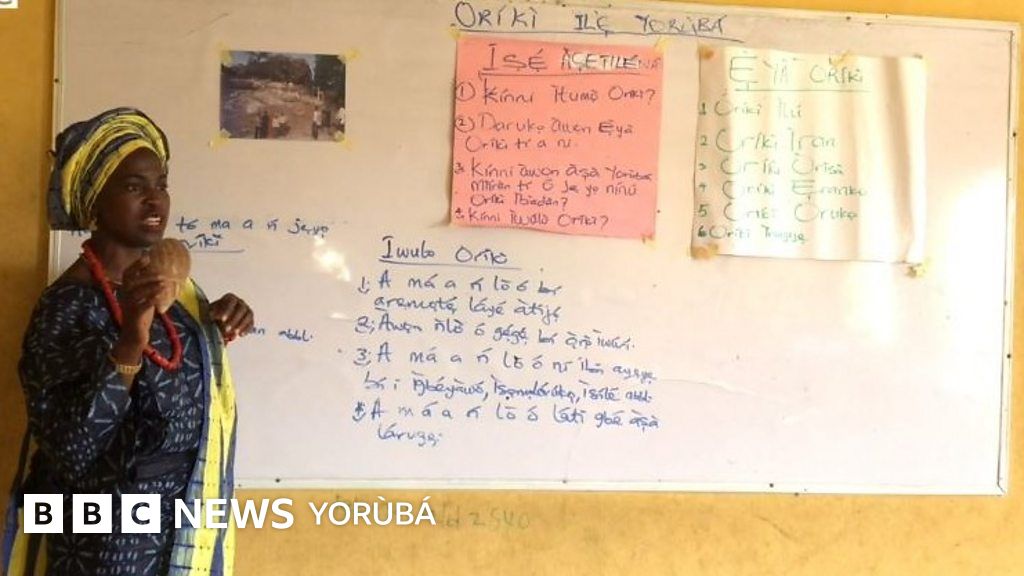 ORÍKÌ ILẸ̀ YORÙBÁ
ISẸ́ ÀṢETILEWÁ
① Kínni Itumọ̀ Oríkì?
② Darukọ àwọn Ẹ̀yà
Oríkì tí a ní.
3 Kínni àwọn àṣà Yorùbá
Mííràn tí ó jẹ yọ nínú
Oríkì Ibadan?
4 Kínni Ìwúlò Oríkì?
Ẹ̀YÀ ORÍKÌ
1 Oríkì Ìlú
2 Oríkì Ìran
3 Oríkì Òrìṣà
4 Oríkì Ẹranko
5 Oríkì Orúkọ
6 Oríkì
tó ma a ń jẹyọ
ríkì
abbl.
Iwulo Oríkì
1; A má a ń lò ó bí
láyé àtijọ́
2; Àwọn ìlò ó gẹ́gẹ́ bí
3; A má a ń lò ó ní ibi ayẹyẹ
bí i Ìgbéyàwó, Ìsọmọlórúkọ, Ìṣílé abbl.
4; A má a ń lò ó láti gbé àṣà
láruge.
BBC NEWS YORÙBÁ